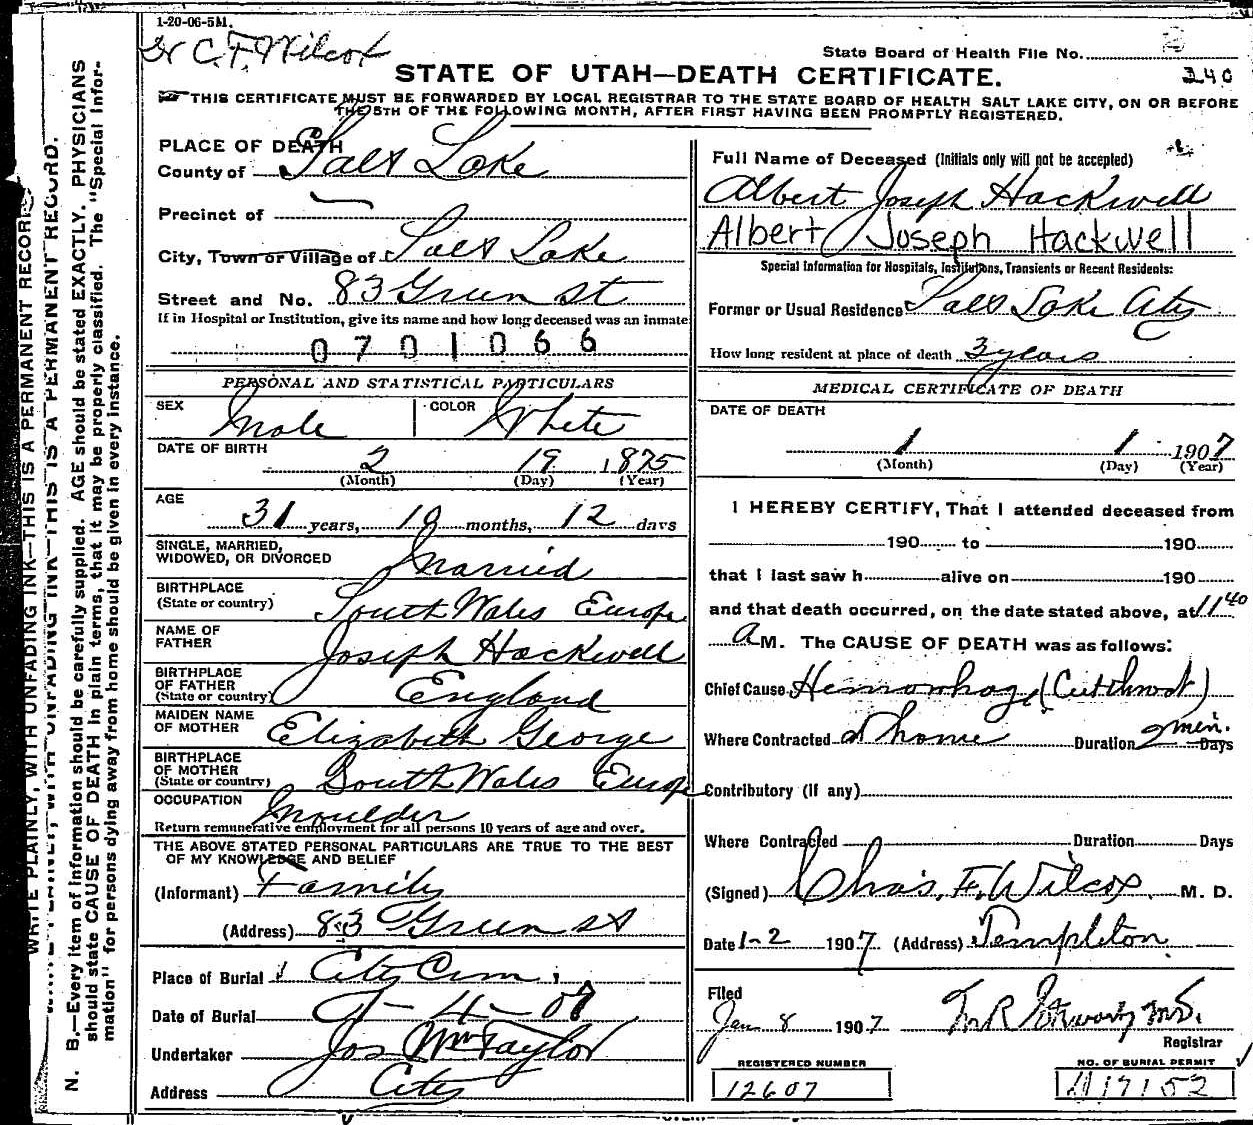 1-20-06-5M.
Dr C. F. Wilcox
State Board of Health File No.
240
STATE OF UTAH—DEATH CERTIFICATE.
THIS CERTIFICATE MUST BE FORWARDED BY LOCAL REGISTRAR TO THE STATE BOARD OF HEALTH SALT LAKE CITY, ON OR BEFORE
THE 5TH OF THE FOLLOWING MONTH, AFTER FIRST HAVING BEEN PROMPTLY REGISTERED.
WRITE PLAINLY, WITH UNFADING INK—THIS IS A PERMANENT RECORD.
N. B.—Every item of information should be carefully supplied. AGE should be stated EXACTLY. PHYSICIANS
should state CAUSE OF DEATH in plain terms, that it may be properly classified. The "Special Infor-
mation" for persons dying away from home should be given in every instance.
PLACE OF DEATH
County of Salt Lake
Precinct of
City, Town or Village of Salt Lake
Street and No. 83 Green St
If in Hospital or Institution, give its name and how long deceased was an inmate
0701066
PERSONAL AND STATISTICAL PARTICULARS
SEX Male COLOR White
DATE OF BIRTH
2 19 1875
(Month) (Day) (Year)
AGE
31 years, 10 months, 12 days
SINGLE, MARRIED,
WIDOWED, OR DIVORCED Married
BIRTHPLACE
(State or country) South Wales Europe
NAME OF
FATHER Joseph Hackwell
BIRTHPLACE
OF FATHER
(State or country) England
MAIDEN NAME
OF MOTHER Elizabeth George
BIRTHPLACE
OF MOTHER
(State or country) South Wales Europe
OCCUPATION Moulder
Return remunerative employment for all persons 10 years of age and over.
THE ABOVE STATED PERSONAL PARTICULARS ARE TRUE TO THE BEST
OF MY KNOWLEDGE AND BELIEF
(Informant) Family
(Address) 83 Green St
Place of Burial City Cem
Date of Burial 1-4-07
Undertaker Jos Wm Taylor
Address City
Full Name of Deceased (Initials only will not be accepted)
Albert Joseph Hackwell
Albert Joseph Hackwell
Special Information for Hospitals, Institutions, Transients or Recent Residents:
Former or Usual Residence Salt Lake City
How long resident at place of death 3 years
MEDICAL CERTIFICATE OF DEATH
DATE OF DEATH
1 1 1907
(Month) (Day) (Year)
I HEREBY CERTIFY, That I attended deceased from
190 to 190
that I last saw h alive on 190
and that death occurred, on the date stated above, at 11 40
a M. The CAUSE OF DEATH was as follows:
Chief Cause Hemorrhage (Cut throat)
Where Contracted at home Duration 2 min. Days
Contributory (if any)
Where Contracted Duration Days
(Signed) Chas. F. Wilcox M. D.
Date 1-2 1907 (Address) Templeton
Filed
Jan 8 1907 M.D.
Registrar
REGISTERED NUMBER
12607
NO. OF BURIAL PERMIT
17152